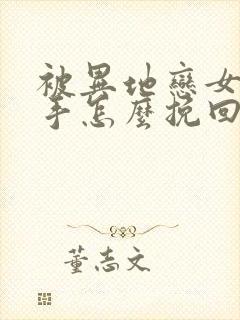 被異地戀女
手怎麼挽回
董志文